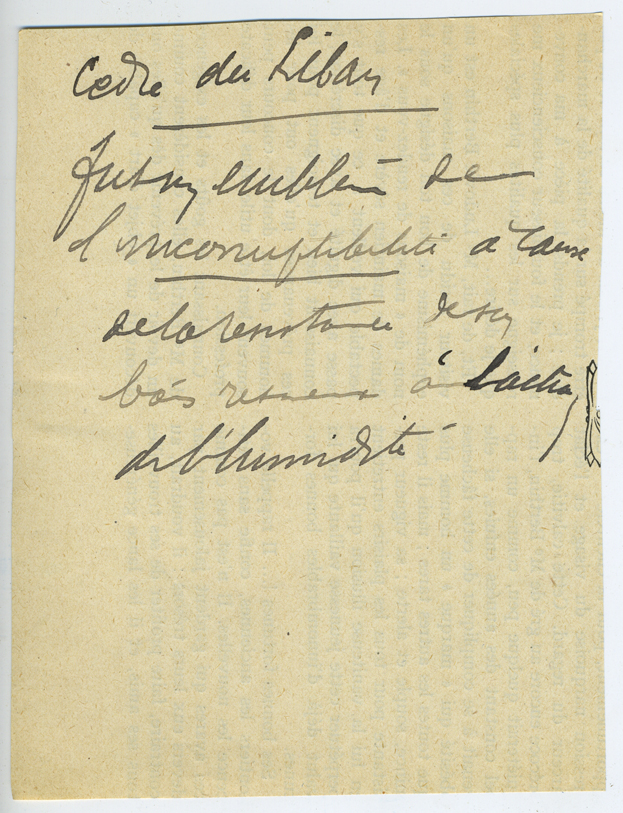 Cedre du Liban
fut un emblème de
l'incorruptibilité à cause
de la resistance de son
bois resineux à l'action
de l'humidité